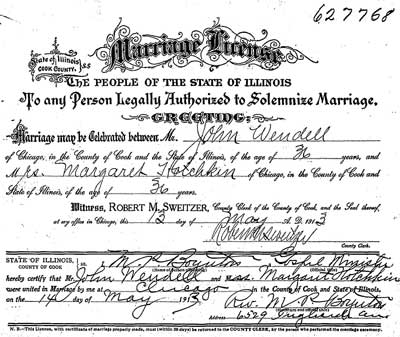 627768
Marriage License
State of Illinois } SS
COOK COUNTY.
THE PEOPLE OF THE STATE OF ILLINOIS
To any Person Legally Authorized to Solemnize Marriage.
GREETING:
Marriage may be Celebrated between Mr. John Wendell
of Chicago, in the County of Cook and the State of Illinois, of the age of 36 years, and
M rs. Margaret Hotchkin of Chicago, in the County of Cook and
State of Illinois, of the age of 36 years.
Witness, ROBERT M. SWEITZER, County Clerk of the County of Cook, and the Seal thereof,
at my office in Chicago, this 13 day of May A. D. 1913
Robert M Sweitzer
County Clerk.
STATE OF ILLINOIS, } ss.
COUNTY OF COOK
I, M. P. Boynton Gospel Minister
hereby certify that Mr. John Wendell and Margaret Hotchkin
were united in Marriage by me at Chicago
on the 14 day of May 1913 Rev. M. P. Boynton
Address 6529 ave
N. B.—This License, with certificate of marriage properly made, must (within 30 days) be returned to the COUNTY CLERK, by the person who performed the marriage ceremony.